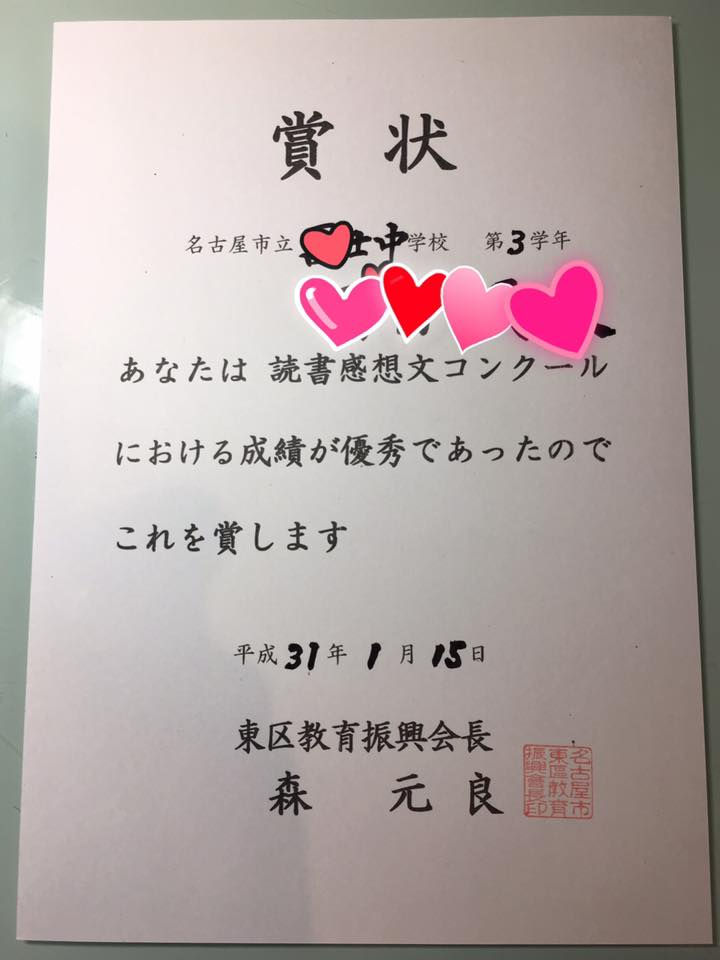 賞状
名古屋市立 士中学校 第3学年
あなたは 読書感想文コンクール
における成績が優秀であったので
これを賞します
平成31年1月15日
東区教育振興会長
森 元良
名古屋市
東区教育
振興会長印